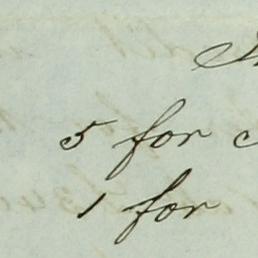 5 for
1 for